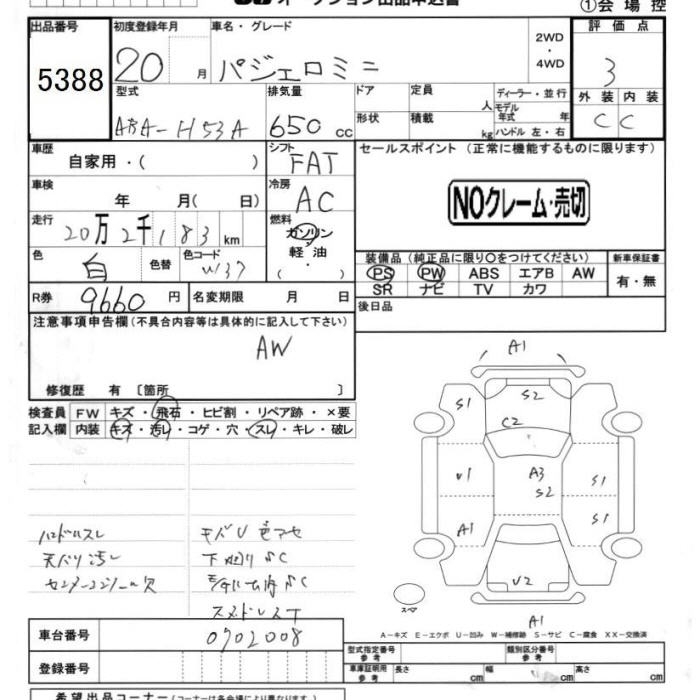 オークション出品申込書
①会場控
出品番号 初度登録年月 車名・グレード 2WD・4WD 評価点
5388 20 月 パジェロミニ 3
型式 排気量 ドア 定員 人 ディーラー・並行 外装 内装
ABA-H53A 650 cc 形状 積載 kg モデル年式 年 ハンドル 左・右 C C
車歴 自家用・( ) シフト FAT セールスポイント (正常に機能するものに限ります)
車検 年 月( 日) 冷房 AC
NOクレーム・売切
走行 20万2千183km 燃料 ガソリン・軽・油・( )
色 白 色替 色コード W37
装備品(純正品に限り○をつけてください) 新車保証書
PS PW ABS エアB AW 有・無
SR ナビ TV カワ
R券 9660円 名変期限 月 日 後日品
注意事項申告欄(不具合内容等は具体的に記入して下さい)
AW
修復歴 有 [箇所 ]
検査員 FW キズ・飛石・ヒビ割・リペア跡・×要
記入欄 内装 キズ・汚レ・コゲ・穴・スレ・キレ・破レ
A1
S1 S2
C2
U1 A3 S1
S2
A1 S1
U2
A1
スペア
ハンドルスレ
天バリ汚レ
下廻りSC
A−キズ E−エクボ U−凹み W−補修跡 S−サビ C−腐食 XX−交換済
車台番号 0902008
登録番号
型式指定番号 参考 類別区分番号 参考
車庫証明用 参考 長さ cm 幅 cm 高さ cm
希望出品コーナー(コーナーは各会場により異なります)